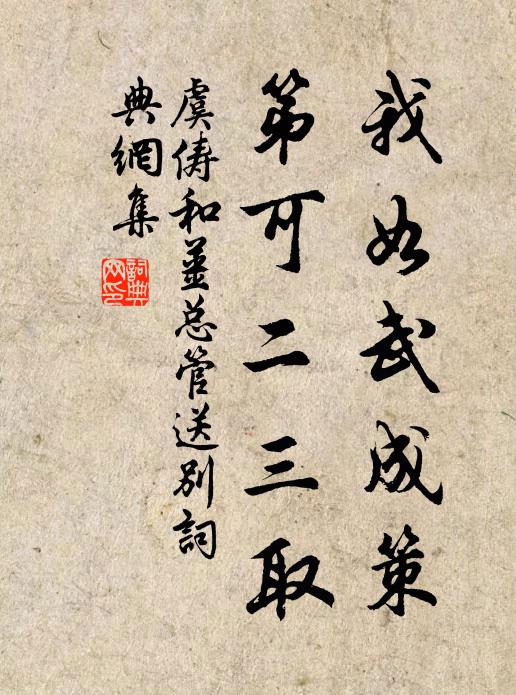 我如武成策
第可二三取
虞俦和姜总管送别詞
典網集
詞典網印